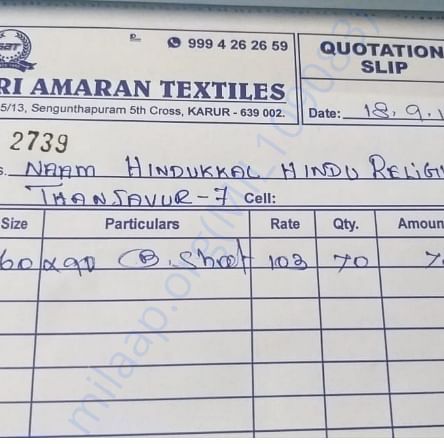 SAT
999 4 26 26 59
QUOTATION
SLIP
RI AMARAN TEXTILES
5/13, Sengunthapuram 5th Cross, KARUR - 639 002.
Date: 18.9.1
2739
s. NAAM HINDUKKAL HINDU RELIGI
THANJAVUR-7 Cell:
Size Particulars Rate Qty. Amoun
60x90 B.Sheet 103 70 7
milaap.org